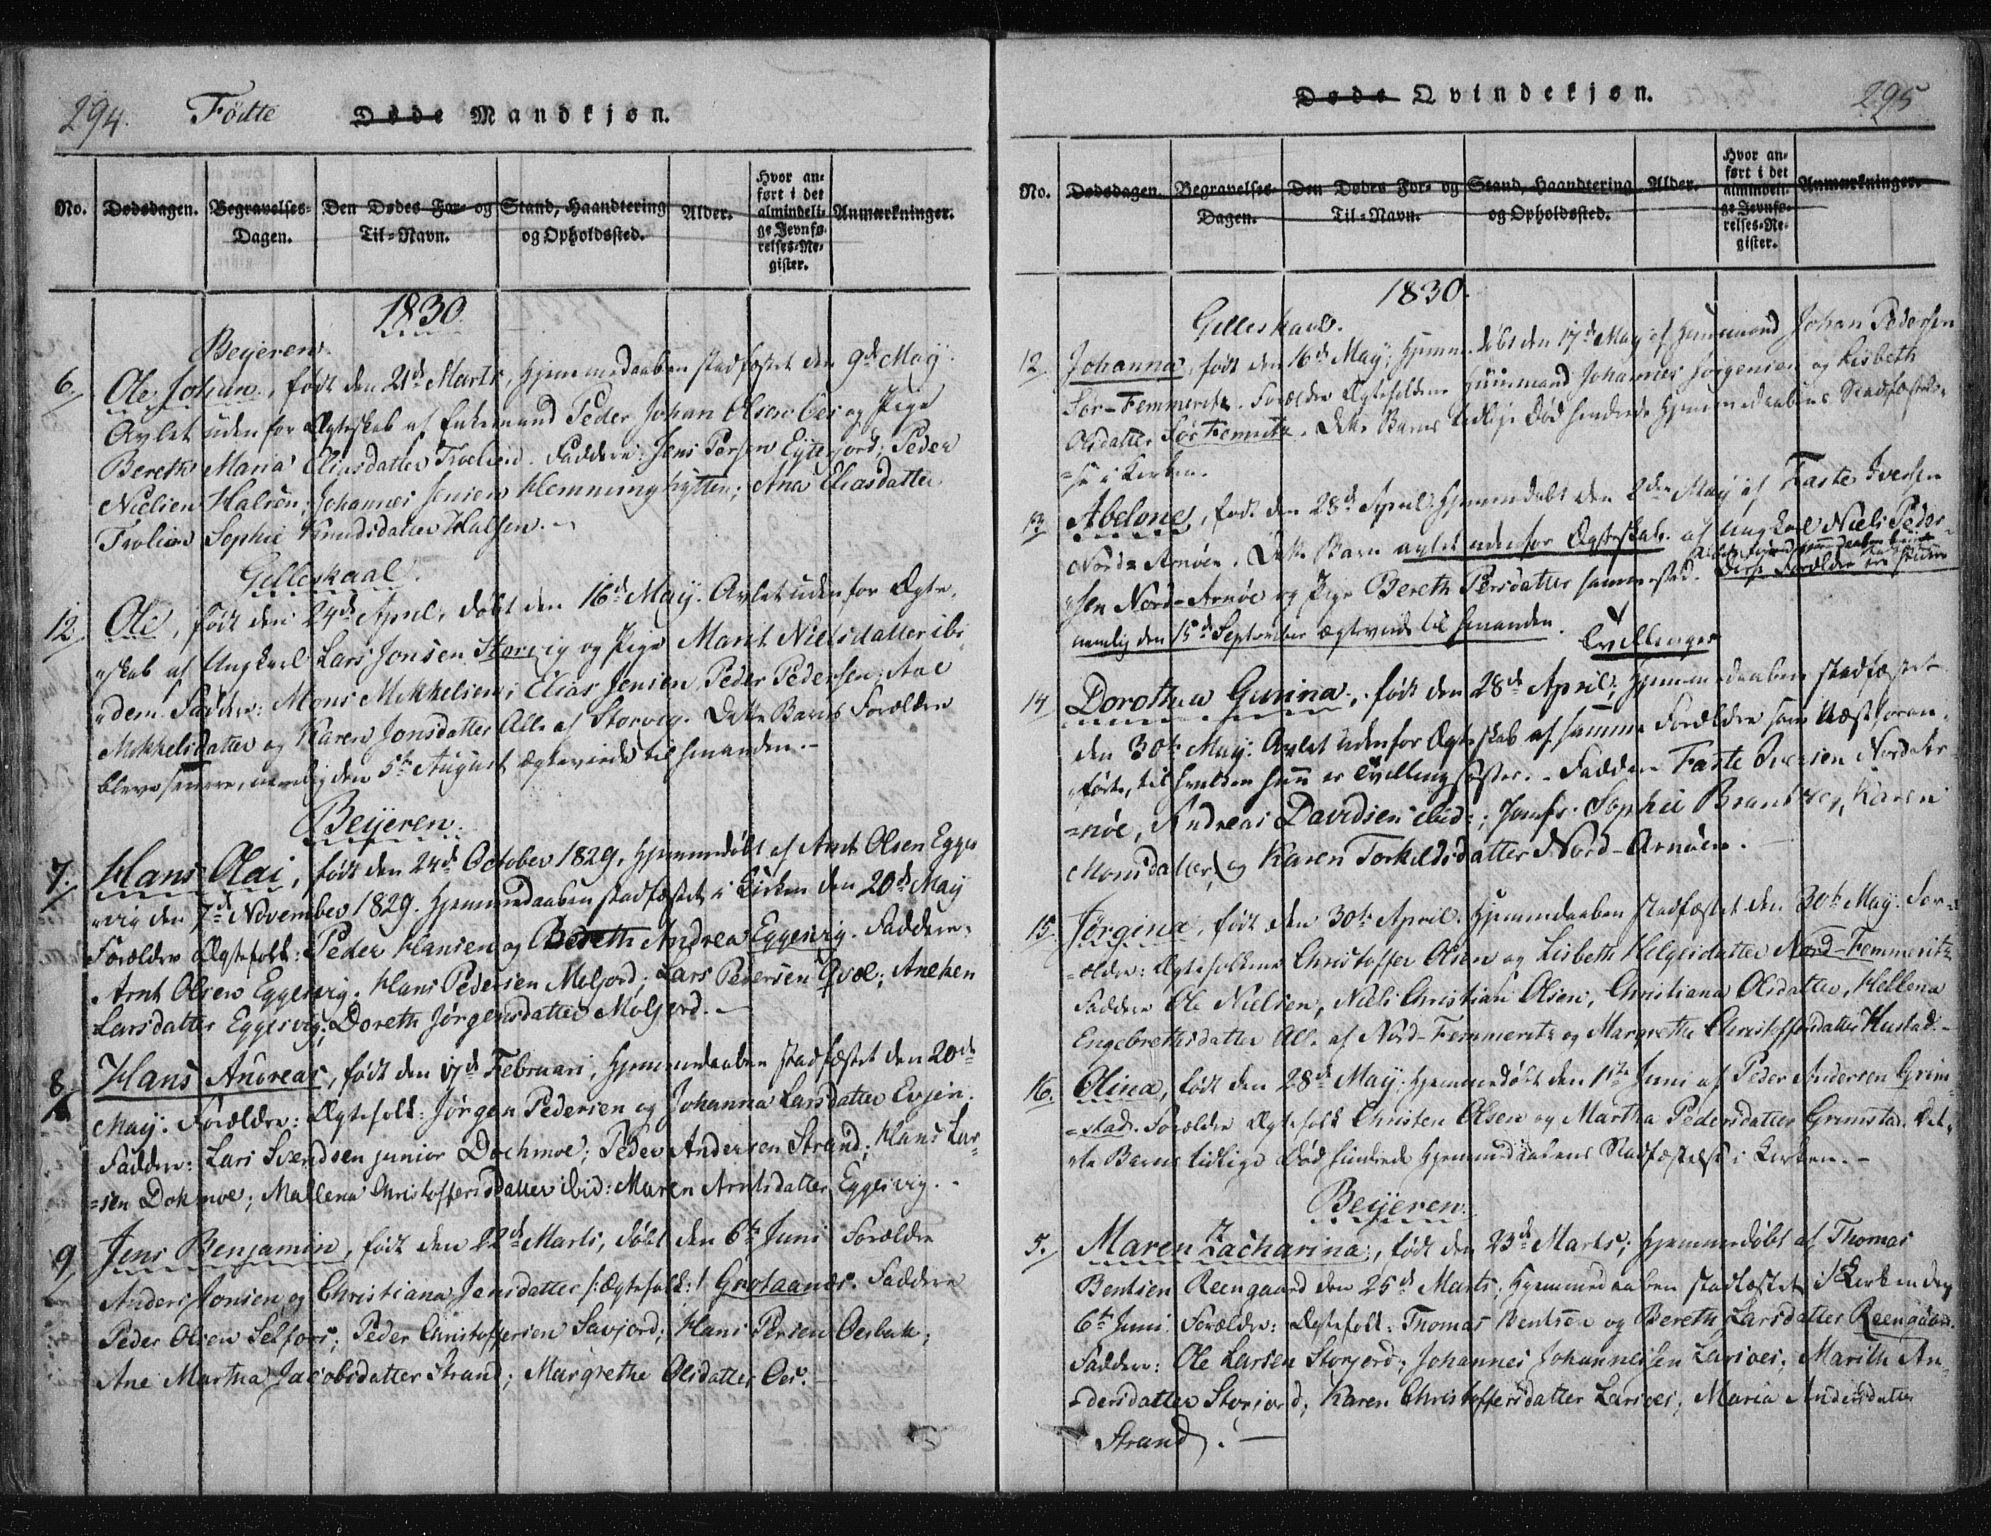 294.
Födte Døde Mandkjøn.
No.
Dødsdagen.
Begravelses-
Dagen.
Den Dødes For- og
Til-Navn.
Stand, Haandtering
og Opholdssted.
Alder.
Hvor an-
ført i det
almindeli-
ge Jevnfø-
relses-Re-
gister.
Anmærkninger.
1830.
Beijeren.
6/ Ole Johan, født den 21de Marts, Hjemmedaaben stadfæstet den 9de May.
Avlet uden for Ægteskab af Enkemand Peder Johan Olsen Oes og Pige
Bereth Maria Eliasdatter Trolien. Faddere: Jens Persen Eyterfjord; Peder
Nielsen Halsen; Johannes Jensen Hemminghytten; Ana Eliasdatter
Trolien Sophie Knudsdatter Halsen.
Gilleskaal.
12/ Ole, født den 24de April, døbt den 16de May. Avlet uden for Ægte-
skab af Ungkarl Lars Jonsen Storvig og Pige Marit Nielsdatter ibi-
dem. Faddere: Mons Mikkelsen; Elias Jensen, Peder Pedersen, Ane
Mikkelsdatter og Karen Jonsdatter Alle af Storvig. Dette Barns Forældre
bleve senere, nemlig den 5te August ægteviede til hinanden.
Beijeren.
7/ Hans Olai, født den 24de October 1829, hjemmedøbt af Arnt Olsen Egges-
vig den 7de November 1829. Hjemmedaaben stadfæstet i Kirken den 20de May
Forældre Ægtefolk: Peder Hansen og Bereth Andrea Eggesvig. Faddere:
Arnt Olsen Eggesvig, Hans Pedersen Moljord; Lars Pedersen Qvæl; Aneken
Larsdatter Eggesvig; Doreth Jørgensdatter Moljord.
8/ Hans Andreas, født den 17de Februari, Hjemmedaaben stadfæstet den 20de
May. Forældre: Ægtefolk: Jørgen Pedersen og Johanna Larsdatter Evjen.
Faddere: Lars Svendsen junior Dochmoe; Peder Andersen Strand; Hans Lar-
sen Dokmoe; Mallena Christoffersdatter ibid: Maren Arntsdatter Eggesvig.
9/ Jens Benjamin, født den 22de Marts, døbt den 6te Juni Forældre
Anders Jonsen og Christiana Jensdatter /: Ægtefolk :/ Grotaanes. Faddere
Peder Olsen Selfors; Peder Christoffersen Savjord; Hans Persen Oesbak;
Ane Martha Jacobsdatter Strand; Margrethe Olsdatter Oes.
295
Døde Qvindekjøn.
No.
Dødsdagen.
Begravelses-
Dagen.
Den Dødes For- og
Til-Navn.
Stand, Haandtering
og Opholdssted.
Alder.
Hvor an-
ført i det
almindeli-
ge Jevnfø-
relses-Re-
gister.
Anmærkninger.
1830.
Gilleskaal.
12/ Johanna, født den 16de May, hjemmedøbt den 17de May af Huusmand Johan Pedersen
Sør-Femmeritz. Forældre Ægtefolkene Huusmand Johannes Jørgensen og Lisbeth
Olsdatter Sør Femritz. Dette Barns tidlige Død hindrede Hjemmedaabens Stadfæstel-
se i Kirken.
13/ Abelone, født den 28de April, hjemmedøbt den 2den May af Faste Iversen
Nord-Arnøen. Dette Barn avlet uden for Ægteskab af Ungkarl Niels Peder-
sen Nord-Arnøe og Pige Bereth Persdatter sammested. Disse Forældre ere senere
nemlig den 15de September ægteviede til hinanden.
Tvillinger
14/ Dorothea Gurina, født den 28de April, hjemmedaaben stadfæstet
den 30te May. Avlet uden for Ægteskab af samme Forældre som næst foran-
førte, til hvilken hun er Tvilling søster. Faddere Faste Iversen Nord Ar-
nøe, Andreas Davidsen ibid:; Jomfr. Sophie Brantzeg, Karen
Monsdatter, og Karen Torkildsdatter Nord-Arnøen.
15/ Jørgina, født den 30te April. Hjemmedaaben stadfæstet den 30te May. For-
ældre: Ægtefolkene Christoffer Olsen og Lisbeth Helgesdatter Nord-Femmeritz
Faddere Ole Nielsen, Niels Christian Olsen, Christiana Olsdatter, Hellena
Engebrethsdatter Alle af Nord-Femmeritz og Margrethe Christoffersdatter Hustad.
16/ Olina, født den 28de May, hjemmedøbt den 1ste Juni af Peder Andersen Grim-
stad. Forældre Ægtefolk Christen Olsen og Martha Pedersdatter Grimstad. Det-
te Barns tidlige Død hindrede Hjemmedaabens Stadfæstelse i Kirken.
Beijeren.
5/ Maren Zacharina, født den 23de Marts; hjemmedøbt af Thomas
Bentsen Reengaard den 25de Marts, Hjemmedaaben stadfæstet i Kirken den
6te Juni. Forældre: Ægtefolk: Thomas Bentsen og Bereth Larsdatter Reengaard.
Faddere: Ole Larsen Storjord; Johannes Johannessen Larsoes; Marith An-
dersdatter Storjord; Karen Christoffersdatter Larsoes; Maria Andersdatter
Strand.